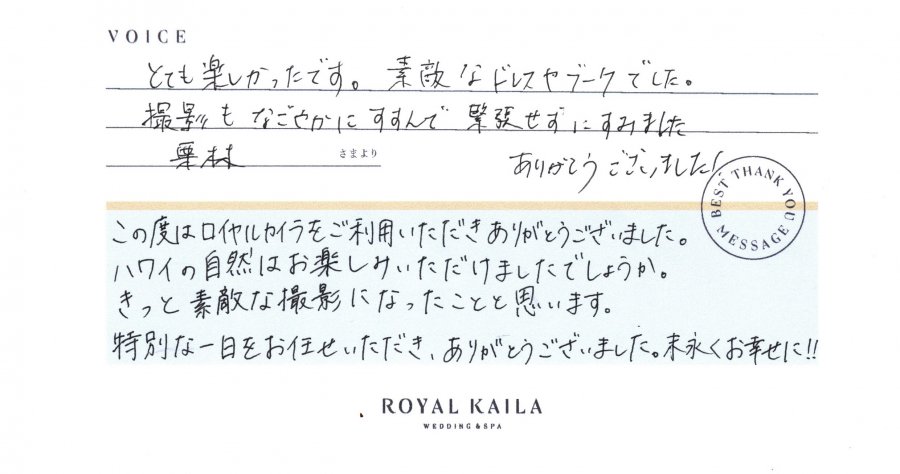 VOICE
とても楽しかったです。素敵なドレスやブーケでした。
撮影もなごやかにすすんで緊張せずにすみました
栗林 さまより ありがとうございました!
BEST THANK YOU MESSAGE
この度はロイヤルカイラをご利用いただきありがとうございました。
ハワイの自然はお楽しみいただけましたでしょうか。
きっと素敵な撮影になったことと思います。
特別な一日をお任せいただき、ありがとうございました。末永くお幸せに!!
ROYAL KAILA
WEDDING & SPA